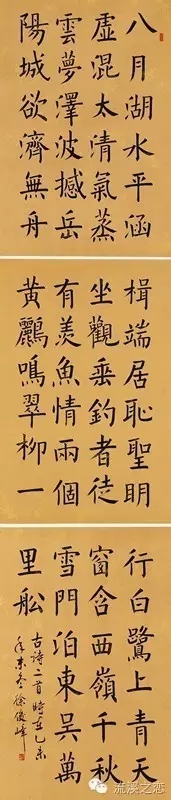 八月湖水平涵
虛混太清氣蒸
雲夢澤波撼岳
陽城欲濟無舟
楫端居恥聖明
坐觀垂釣者徒
有羨魚情兩個
黃鸝鳴翠柳一
行白鷺上青天
窗含西嶺千秋
雪門泊東吳萬
里船
古詩二首時在乙未
冬徐俊峰
流溪之恋